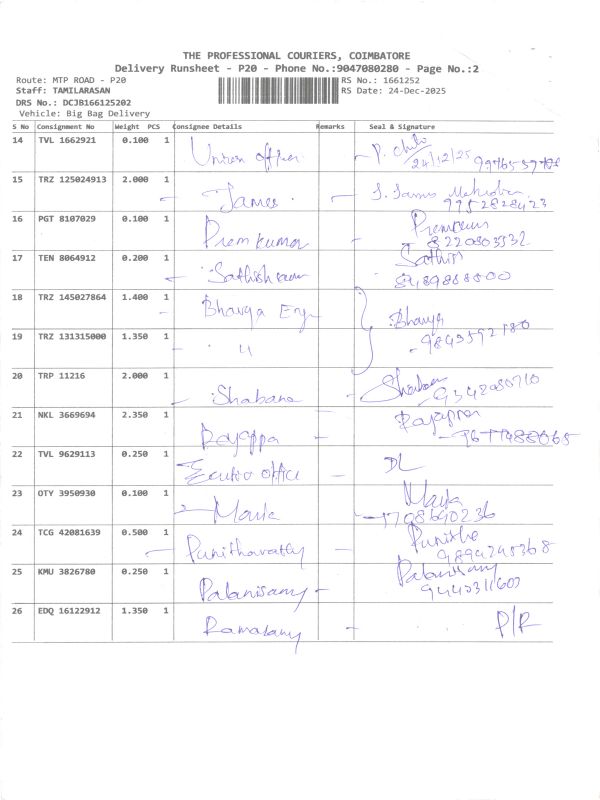 THE PROFESSIONAL COURIERS, COIMBATORE
Delivery Runsheet - P20 - Phone No.:9047080280 - Page No.:2
Route: MTP ROAD - P20 RS No.: 1661252
Staff: TAMILARASAN RS Date: 24-Dec-2025
DRS No.: DCJB166125202
Vehicle: Big Bag Delivery
S No Consignment No Weight PCS Consignee Details Remarks Seal & Signature
14 TVL 1662921 0.100 1 Union office
24/12/25
15 TRZ 125024913 2.000 1 James
9952828423
16 PGT 8107029 0.100 1 Prem kumar
8220803532
17 TEN 8064912 0.200 1 Sathish Sathish
18 TRZ 145027864 1.400 1 Bhavya Bhavya
19 TRZ 131315000 1.350 1 "
20 TRP 11216 2.000 1 Shabana
21 NKL 3669694 2.350 1 Rajappa Rajappa
22 TVL 9629113 0.250 1 office DL
23 OTY 3950930 0.100 1
24 TCG 42081639 0.500 1 Punithavathy Punitha
25 KMU 3826780 0.250 1 Palanisamy Palanisamy
26 EDQ 16122912 1.350 1 Ramasamy P/R